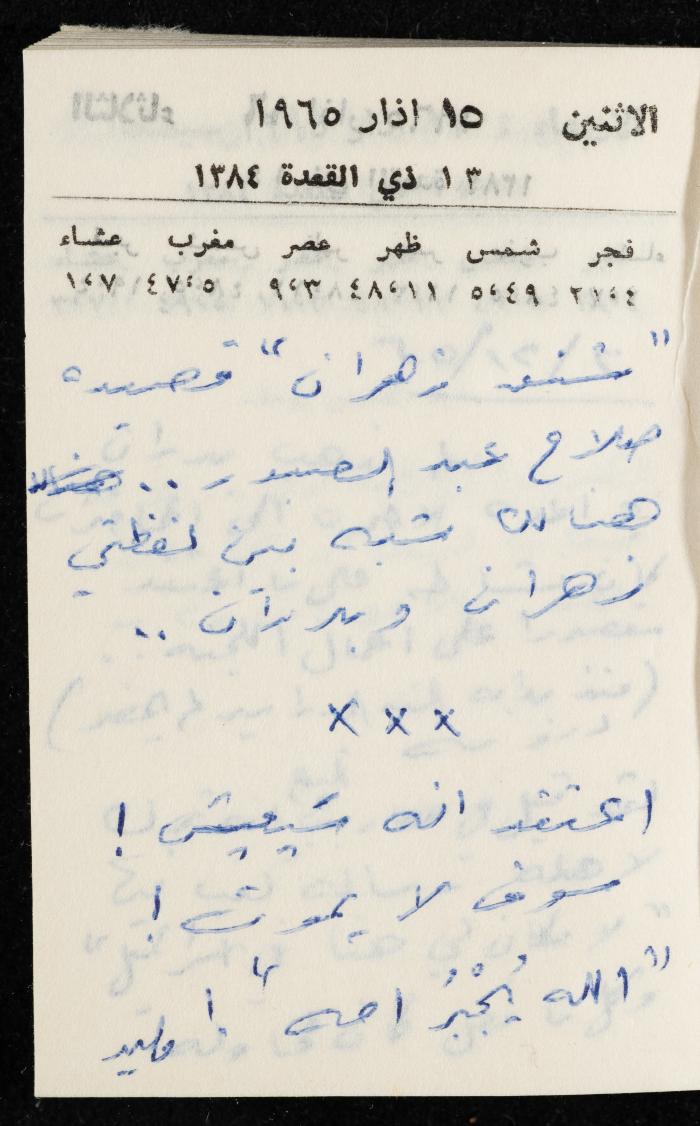 الاثنين ١٥ اذار ١٩٦٥
١٣ ذي القعدة ١٣٨٤
فجر شمس ظهر عصر مغرب عشاء
٤،٢١ ٥،٤٩ ١١،٤٨ ٣،٩ ٥،٤٧ ٧،١
"شنق زهران" قصيده
صلاح عبد الصبور ..
هنالك شبه بين لفظتي
زهران وبدران ..
x x x
اعتقد انه سيعيش !
سوف لا يموت !
"الله يُجْبُرْ امه"